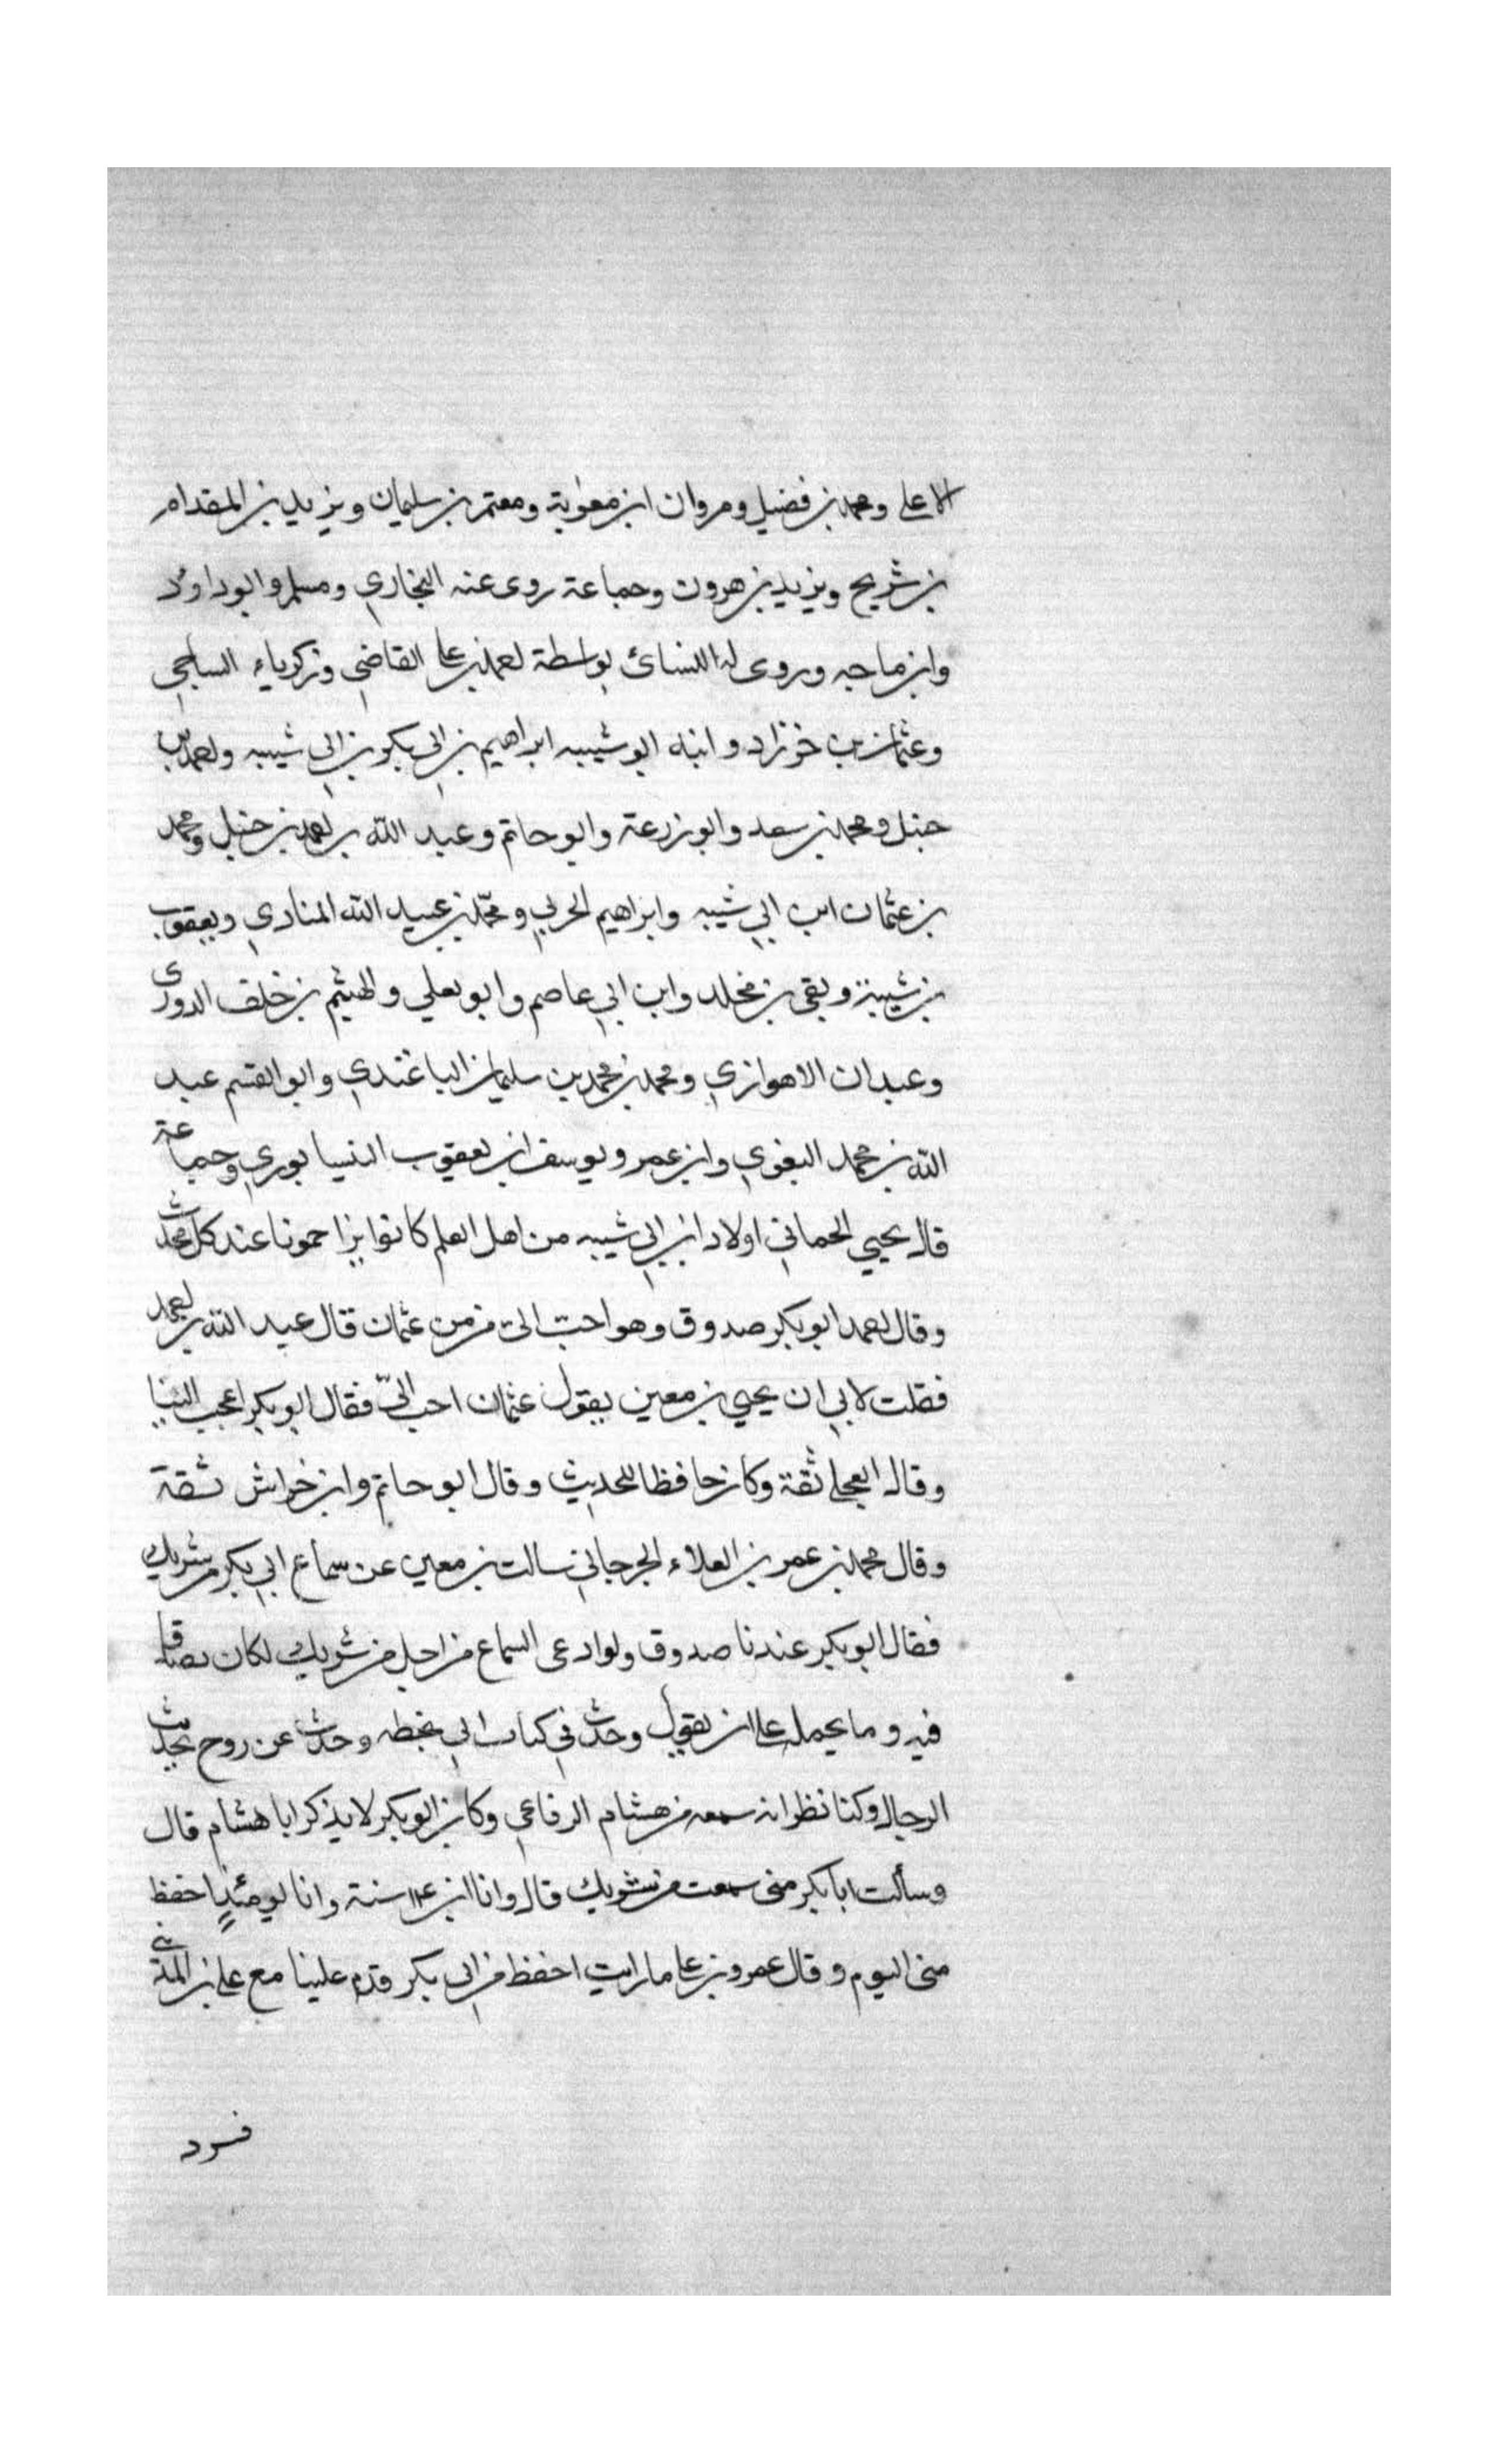 الاعلى ومحمد بن فضيل ومروان ابن معوية ومعتمر بن سليمان ويزيد بن المقدام
بن شريح ويزيد بن هرون وجماعة روى عنه البخاري ومسلم وابو داود
وابن ماجه وروى له النسائ بواسطة احمد بن على القاضي وزكرياء الساجي
وعثمان بن خرزاد وابنه ابو شيبه ابراهيم بن ابي بكر بن ابي شيبه واحمد بن
حنبل ومحمد بن سعد وابو زرعة وابو حاتم وعبد الله بن احمد بن حنبل ومحمد
بن عثمان ابن ابي شيبه وابراهيم الحربي ومحمد بن عبيد الله المنادي ويعقوب
بن شيبة وبقى بن مخلد وابن ابي عاصم وابو يعلي والهيثم بن خلف الدورى
وعبدان الاهوازي ومحمد بن محمد بن سليمان الباغندي وابو القسم عبد
الله بن محمد البغوي وابن عمرو يوسف ابن يعقوب النيسابوري وجماعة
قال يحيي الحماني اولاد ابن ابي شيبه من اهل العلم كانوا يزاحمونا عند كل محدث
وقال احمد ابو بكر صدوق وهو احب الي من من عثمان قال عبد الله بن احمد
فقلت لابي ان يحيي بن معين يقول عثمان احب اليّ فقال ابو بكر اعجب الينا
وقال العجلى ثقة وكان حافظا للحديث وقال ابو حاتم وابن خراش ثقة
وقال محمد بن عمر بن العلاء الجرجاني سالت بن معين عن سماع ابي بكر من شريك
فقال ابو بكر عندنا صدوق ولو ادعى السماع من اجل من شريك لكان مصدقا
فيه وما يحمله على ان يقول وجدت في كتاب ابي بخطه وحدث عن روح بحديث
الرجال وكنا نظن انه سمعه من هشام الرفاعي وكان ابو بكر لا يذكر ابا هشام قال
وسألت ابا بكر متى سمعت من شريك قال وانا ابن ١٤ سنة وانا يومئذٍ احفظ
منى اليوم وقال عمرو بن على ما رايت احفظ من ابي بكر قدم علينا مع على بن المديني
فسرد